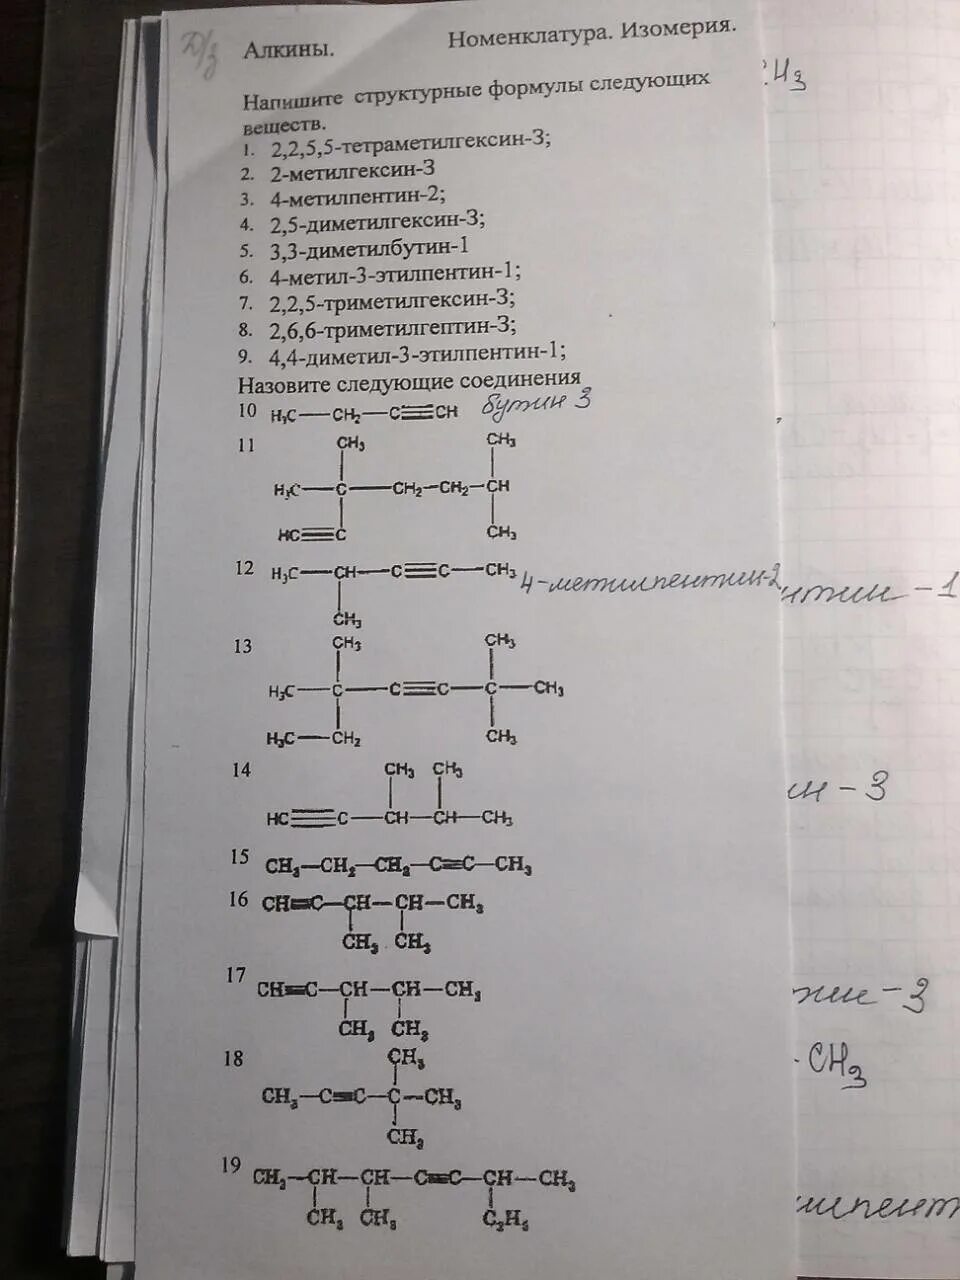 Д/з
Алкины. Номенклатура. Изомерия.
Напишите структурные формулы следующих
веществ.
1. 2,2,5,5-тетраметилгексин-3;
2. 2-метилгексин-3
3. 4-метилпентин-2;
4. 2,5-диметилгексин-3;
5. 3,3-диметилбутин-1
6. 4-метил-3-этилпентин-1;
7. 2,2,5-триметилгексин-3;
8. 2,6,6-триметилгептин-3;
9. 4,4-диметил-3-этилпентин-1;
Назовите следующие соединения
10 H₃C—CH₂—C≡CH бутин 3
11 CH₃ CH₃
H₃C—C—CH₂—CH₂—CH
HC≡C CH₃
12 H₃C—CH—C≡C—CH₃ 4-метилпентин-2
CH₃
13 CH₃ CH₃
H₃C—C—C≡C—C—CH₃
H₃C—CH₂ CH₃
14 CH₃ CH₃
HC≡C—CH—CH—CH₃
15 CH₃—CH₂—CH₂—C≡C—CH₃
16 CH≡C—CH—CH—CH₃
CH₃ CH₃
17 CH≡C—CH—CH—CH₃
CH₃ CH₃
18 CH₃
CH₃—C≡C—C—CH₃
CH₃
19 CH₃—CH—CH—C≡C—CH—CH₃
CH₃ CH₃ C₂H₅
CH₃
нтин-1
ин-3
тин-3
-CH₃
илпент